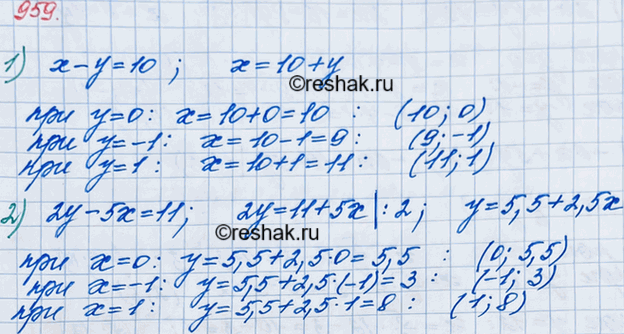 959.
1) x-y=10 ; x=10+y
©reshak.ru
при y=0: x=10+0=10 : (10; 0)
при y=-1: x=10-1=9: (9; -1)
при y=1: x=10+1=11: (11; 1)
2) 2y-5x=11; 2y=11+5x|:2; y=5,5+2,5x
©reshak.ru
при x=0: y=5,5+2,5·0=5,5 : (0; 5,5)
при x=-1: y=5,5+2,5·(-1)=3 : (-1; 3)
при x=1: y=5,5+2,5·1=8 : (1; 8)